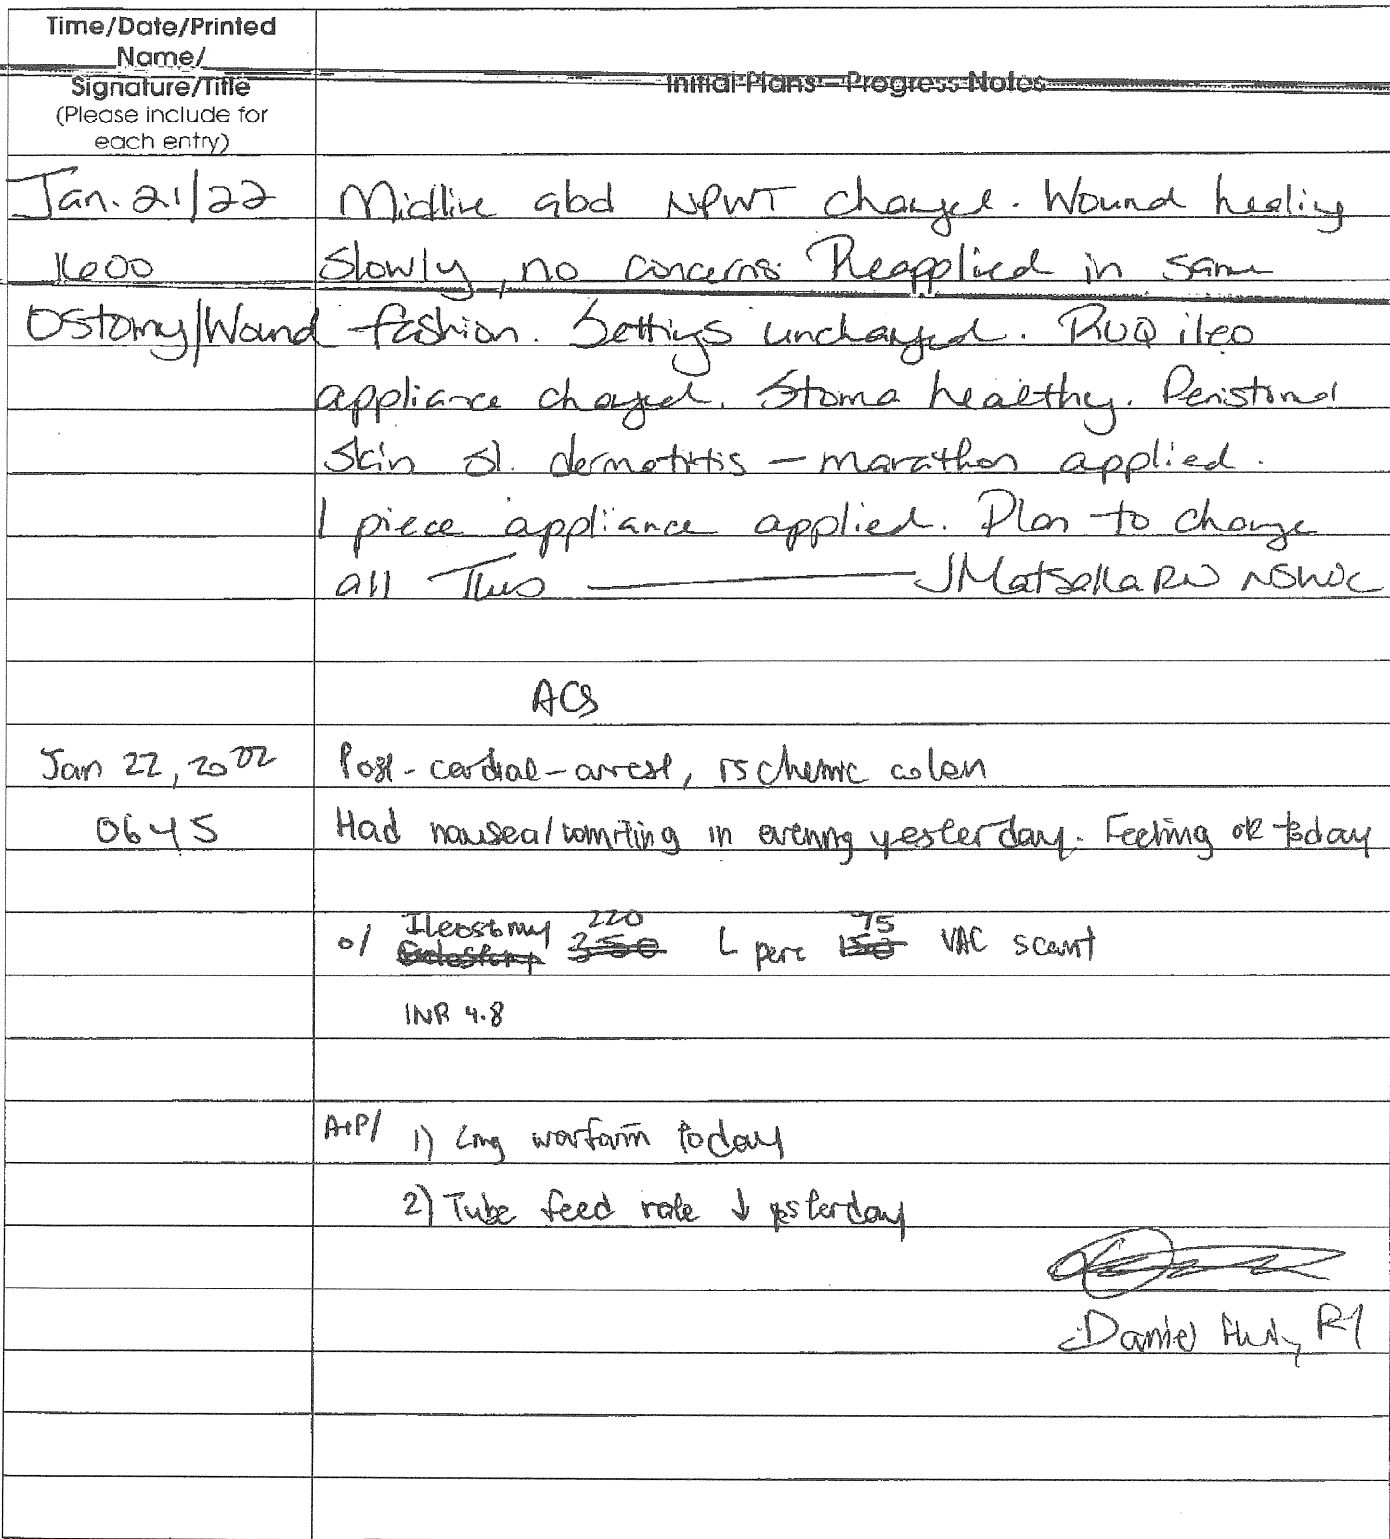 Time/Date/Printed
Name/
Signature/Title
(Please include for
each entry)
Initial Plans – Progress Notes
Jan. 21/22 Midline abd NPWT changed. Wound healing
1600 Slowly, no concerns. Reapplied in same
Ostomy/Wound fashion. Settings unchanged. RUQ ileo
appliance changed. Stoma healthy. Peristomal
skin sl. dermatitis – marathon applied.
1 piece appliance applied. Plan to change
all Thurs JMatsalla RN NSWOC
ACS
Jan 22, 2022 Post-cardiac-arrest, ischemic colon
0645 Had nausea/vomiting in evening yesterday. Feeling ok today
o/ Ileostomy 220 L perc 75 VAC scant
350 150
INR 4.8
A+P/ 1) warfarin today
2) Tube feed rate ↓ yesterday
Daniel R1